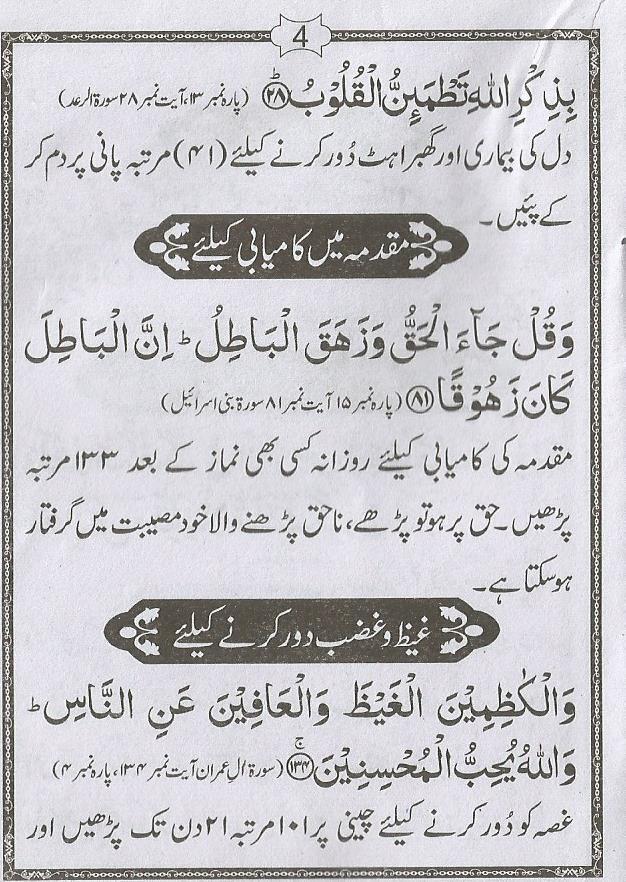 4
بِذِكْرِ اللهِ تَطْمَئِنُّ الْقُلُوْبُ ﴿۲۸﴾ؕ (پارہ نمبر ۱۳، آیت نمبر ۲۸ سورۃ الرعد)
دل کی بیماری اور گھبراہٹ دُور کرنے کیلئے (۴۱) مرتبہ پانی پر دم کر
کے پئیں۔
مقدمہ میں کامیابی کیلئے
وَقُلْ جَآءَ الْحَقُّ وَزَهَقَ الْبَاطِلُ ؕ اِنَّ الْبَاطِلَ
كَانَ زَهُوْقًا ﴿۸۱﴾ (پارہ نمبر ۱۵ آیت نمبر ۸۱ سورۃ بنی اسرائیل)
مقدمہ کی کامیابی کیلئے روزانہ کسی بھی نماز کے بعد ۱۳۳ مرتبہ
پڑھیں۔ حق پر ہو تو پڑھے، ناحق پڑھنے والا خود مصیبت میں گرفتار
ہو سکتا ہے۔
غیظ و غضب دور کرنے کیلئے
وَالْكٰظِمِيْنَ الْغَيْظَ وَالْعَافِيْنَ عَنِ النَّاسِ ؕ
وَاللهُ يُحِبُّ الْمُحْسِنِيْنَ ﴿۱۳۴﴾ۚ (سورۃ اٰلِ عمران آیت نمبر ۱۳۴، پارہ نمبر ۴)
غصہ کو دُور کرنے کیلئے چینی پر ۱۰۱ مرتبہ ۲۱ دن تک پڑھیں اور